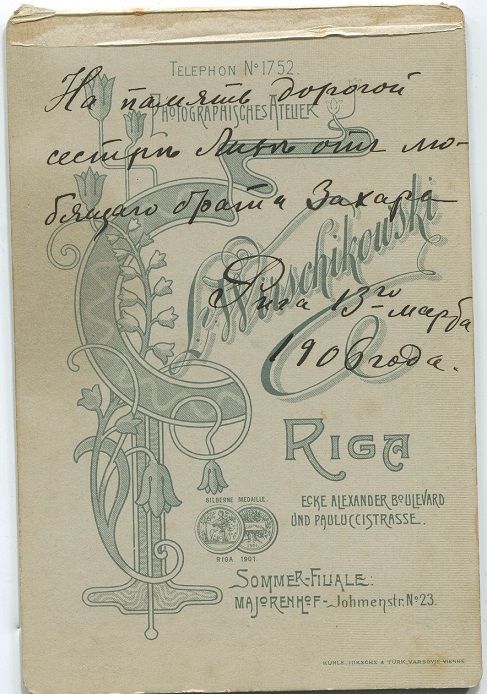 TELEPHON Nº 1752.
PHOTOGRAPHISCHES ATELIER
На память дорогой
сестрѣ Линѣ отъ лю-
бящаго брата Захара
Рига 13го марта
1906 года.
RIGA
ECKE ALEXANDER BOULEVARD
UND PAULUCCISTRASSE.
SILBERNE MEDAILLE.
RIGA 1901.
SOMMER-FILIALE:
MAJORENHOF-Johmenstr. Nº 23.
TÜRK, VARSOVIE-VIENNE